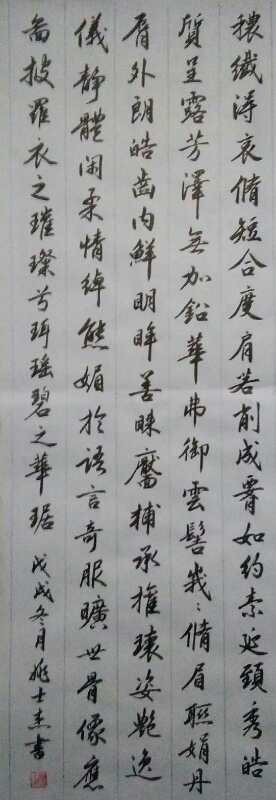 穠纖得衷脩短合度肩若削成腰如約素延頸秀皓
質呈露芳澤無加鉛華弗御雲髻峩〻脩眉聯娟丹
脣外朗皓齒內鮮明眸善睞靨輔承權瓌姿艷逸
儀靜體閑柔情綽態媚於語言奇服曠世骨像應
圖披羅衣之璀璨兮珥瑤碧之華琚 戊戌冬月姚士杰書